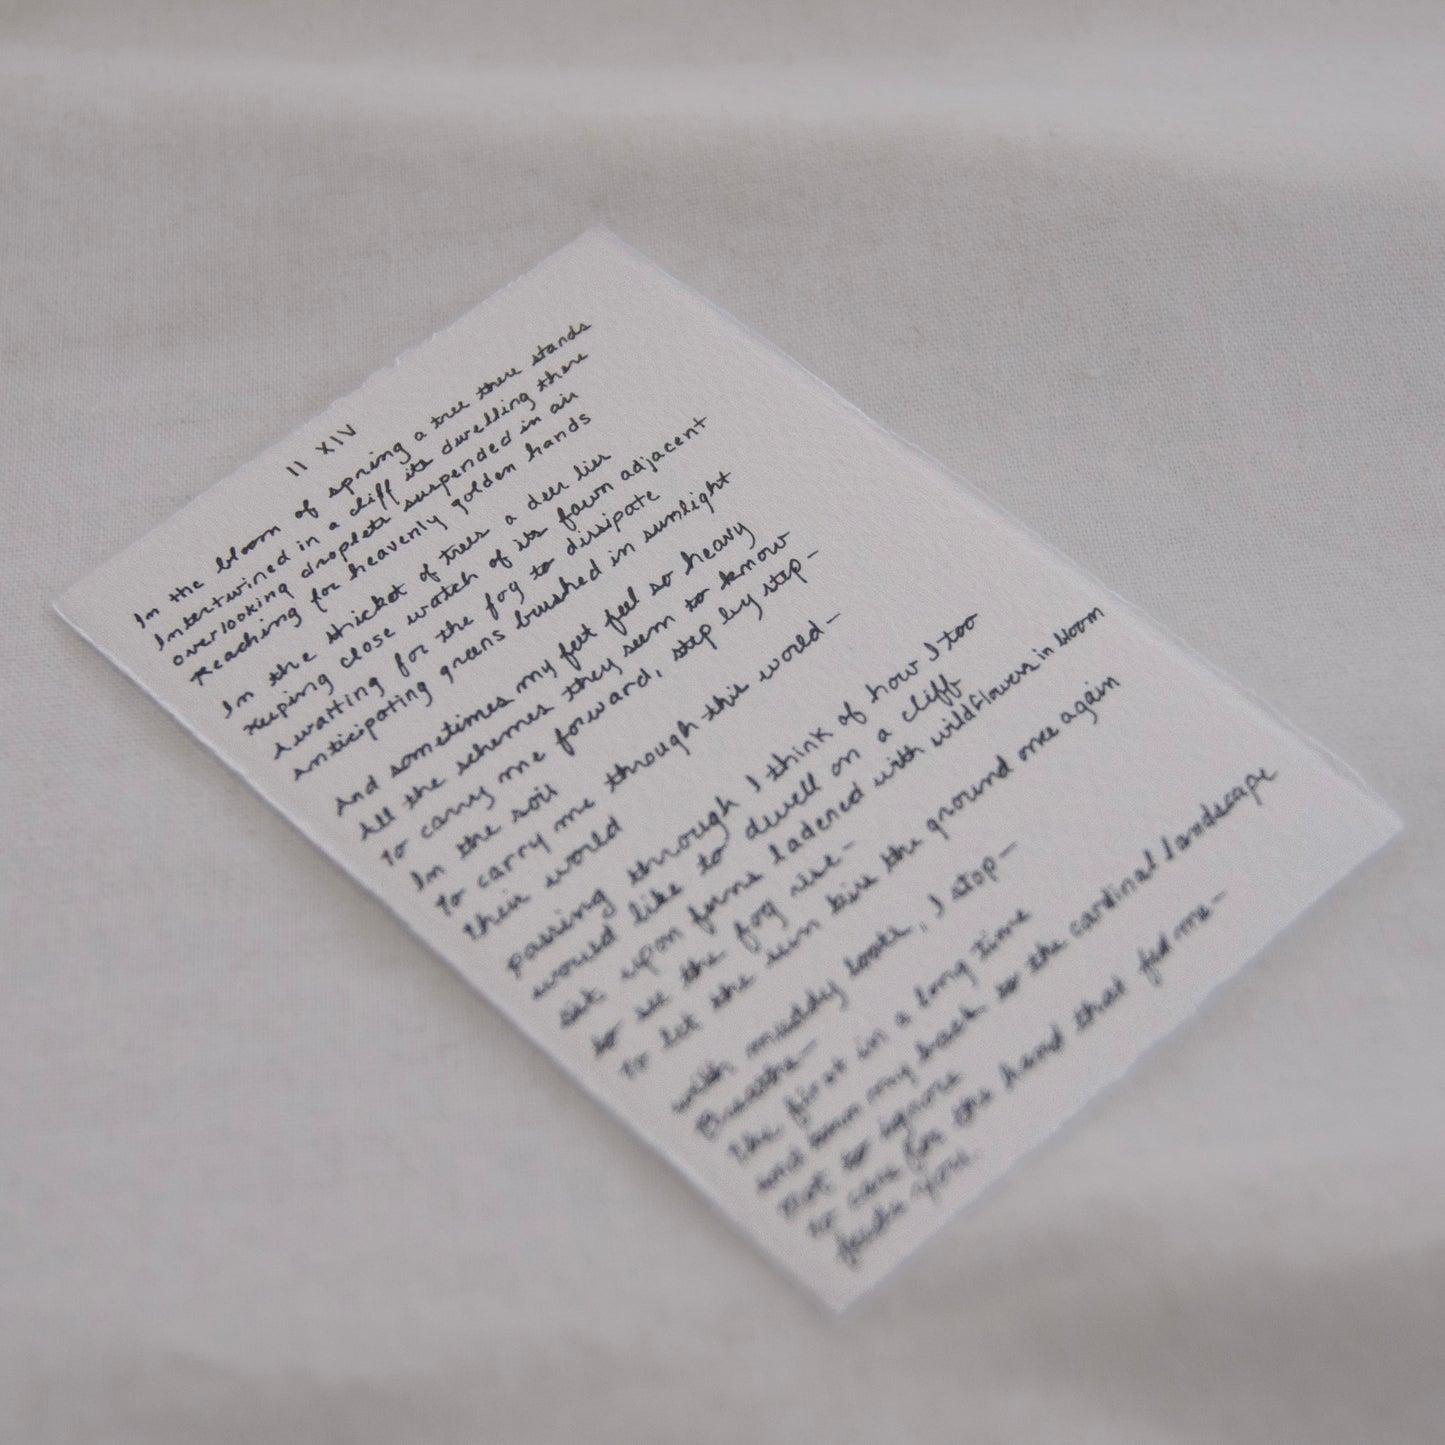 II XIV
In the bloom of spring a tree there stands
Intertwined in a cliff its dwelling there
overlooking droplets suspended in air
Reaching for heavenly golden hands
In the thicket of trees a deer lies
Keeping close watch of its fawn adjacent
Awaiting for the fog to dissipate
Anticipating greens brushed in sunlight
And sometimes my feet feel so heavy
All the schemes they seem to know
To carry me forward, step by step-
In the soil
To carry me through this world-
their world
passing through I think of how I too
would like to dwell on a cliff
sit upon ferns ladened with wildflowers in bloom
to see the fog rise-
To let the sun kiss the ground once again
with muddy boots, I stop-
Breathe-
The first in a long time
and turn my back to the cardinal landscape
Not to ignore
to care for the hand that fed me-
you.